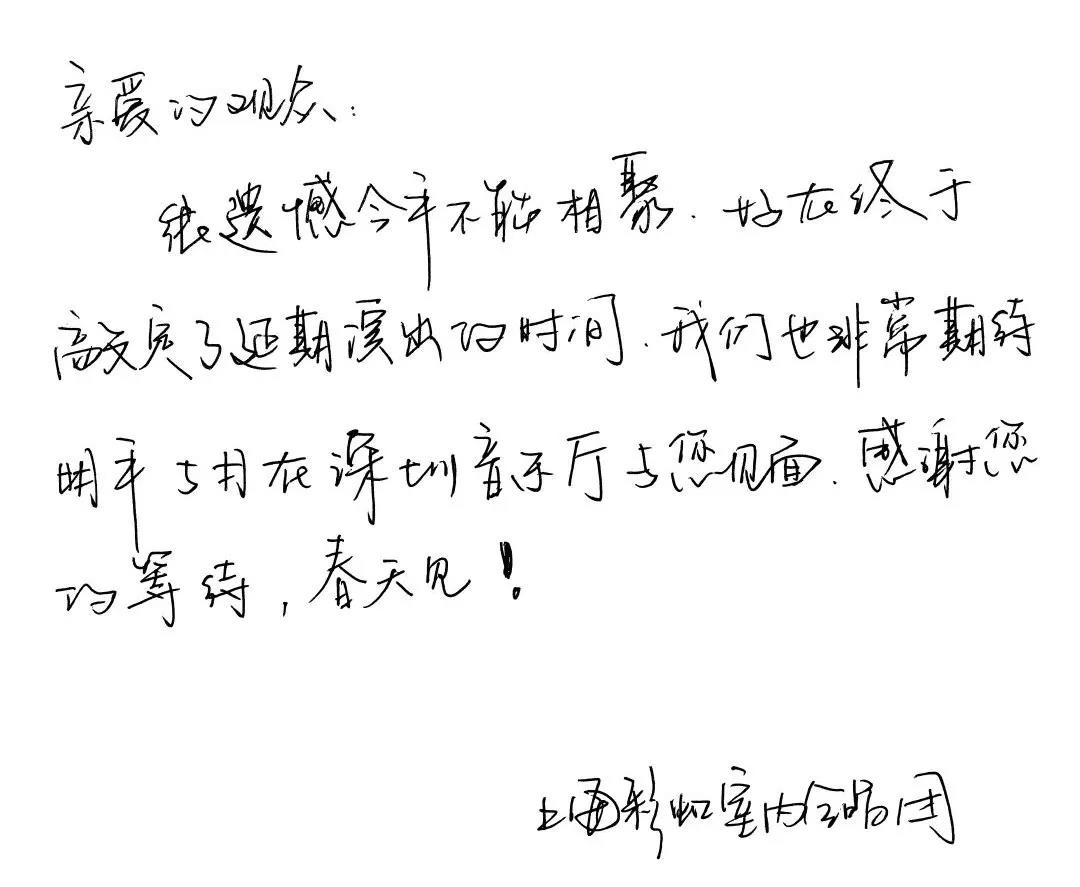 亲爱的观众：
很遗憾今年不能相聚．好在终于
敲定了延期演出的时间．我们也非常期待
明年5月在深圳音乐厅与您见面．感谢您
的等待，春天见！
上海彩虹室内合唱团